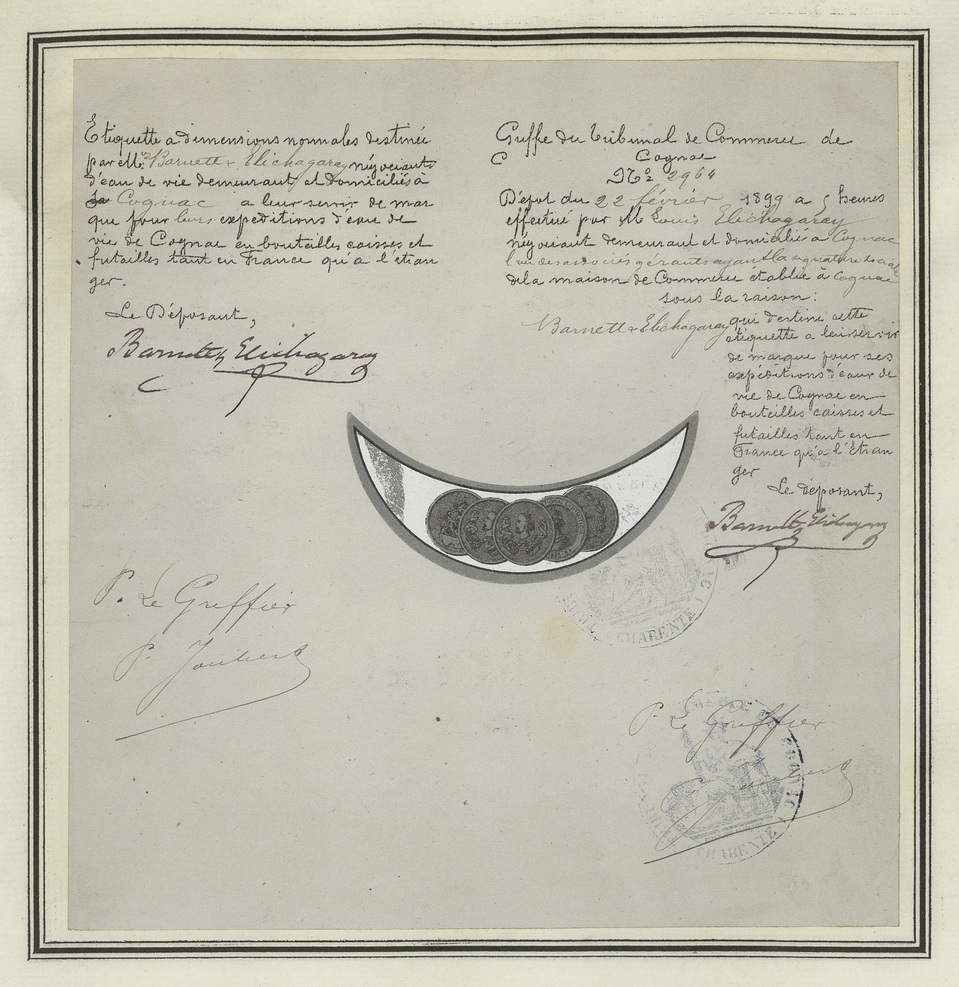 Etiquette a dimensions normales destinée
par MM. Barnett & Elichagaray négociants
d'eau de vie demeurant et domiciliés à
Cognac a leur servir de mar
que pour leurs expeditions d'eau de
vie de Cognac en bouteilles caisses et
futailles tant en France qu'a l'etran
ger.
Le Déposant,
Barnett & Elichagaray
P. Le Greffier
P. Joubert
Greffe du Tribunal de Commerce de
Cognac
No 2964
Dépot du 22 février 1899 a 5 heures
effectué par M Louis Elichagaray
négociant demeurant et domicilié a Cognac
l'un des associés gérants ayant la signature sociale
de la maison de Commerce établie à Cognac
sous la raison:
Barnett & Elichagaray qui destine cette
etiquette a leur servir
de marque pour ses
expéditions d'eaux de
vie de Cognac en
bouteilles caisses et
futailles tant en
France qu'a l'Etran
ger
Le deposant,
Barnett & Elichagaray
CHARENTE
P. Le Greffier
P. Joubert
CHARENTE